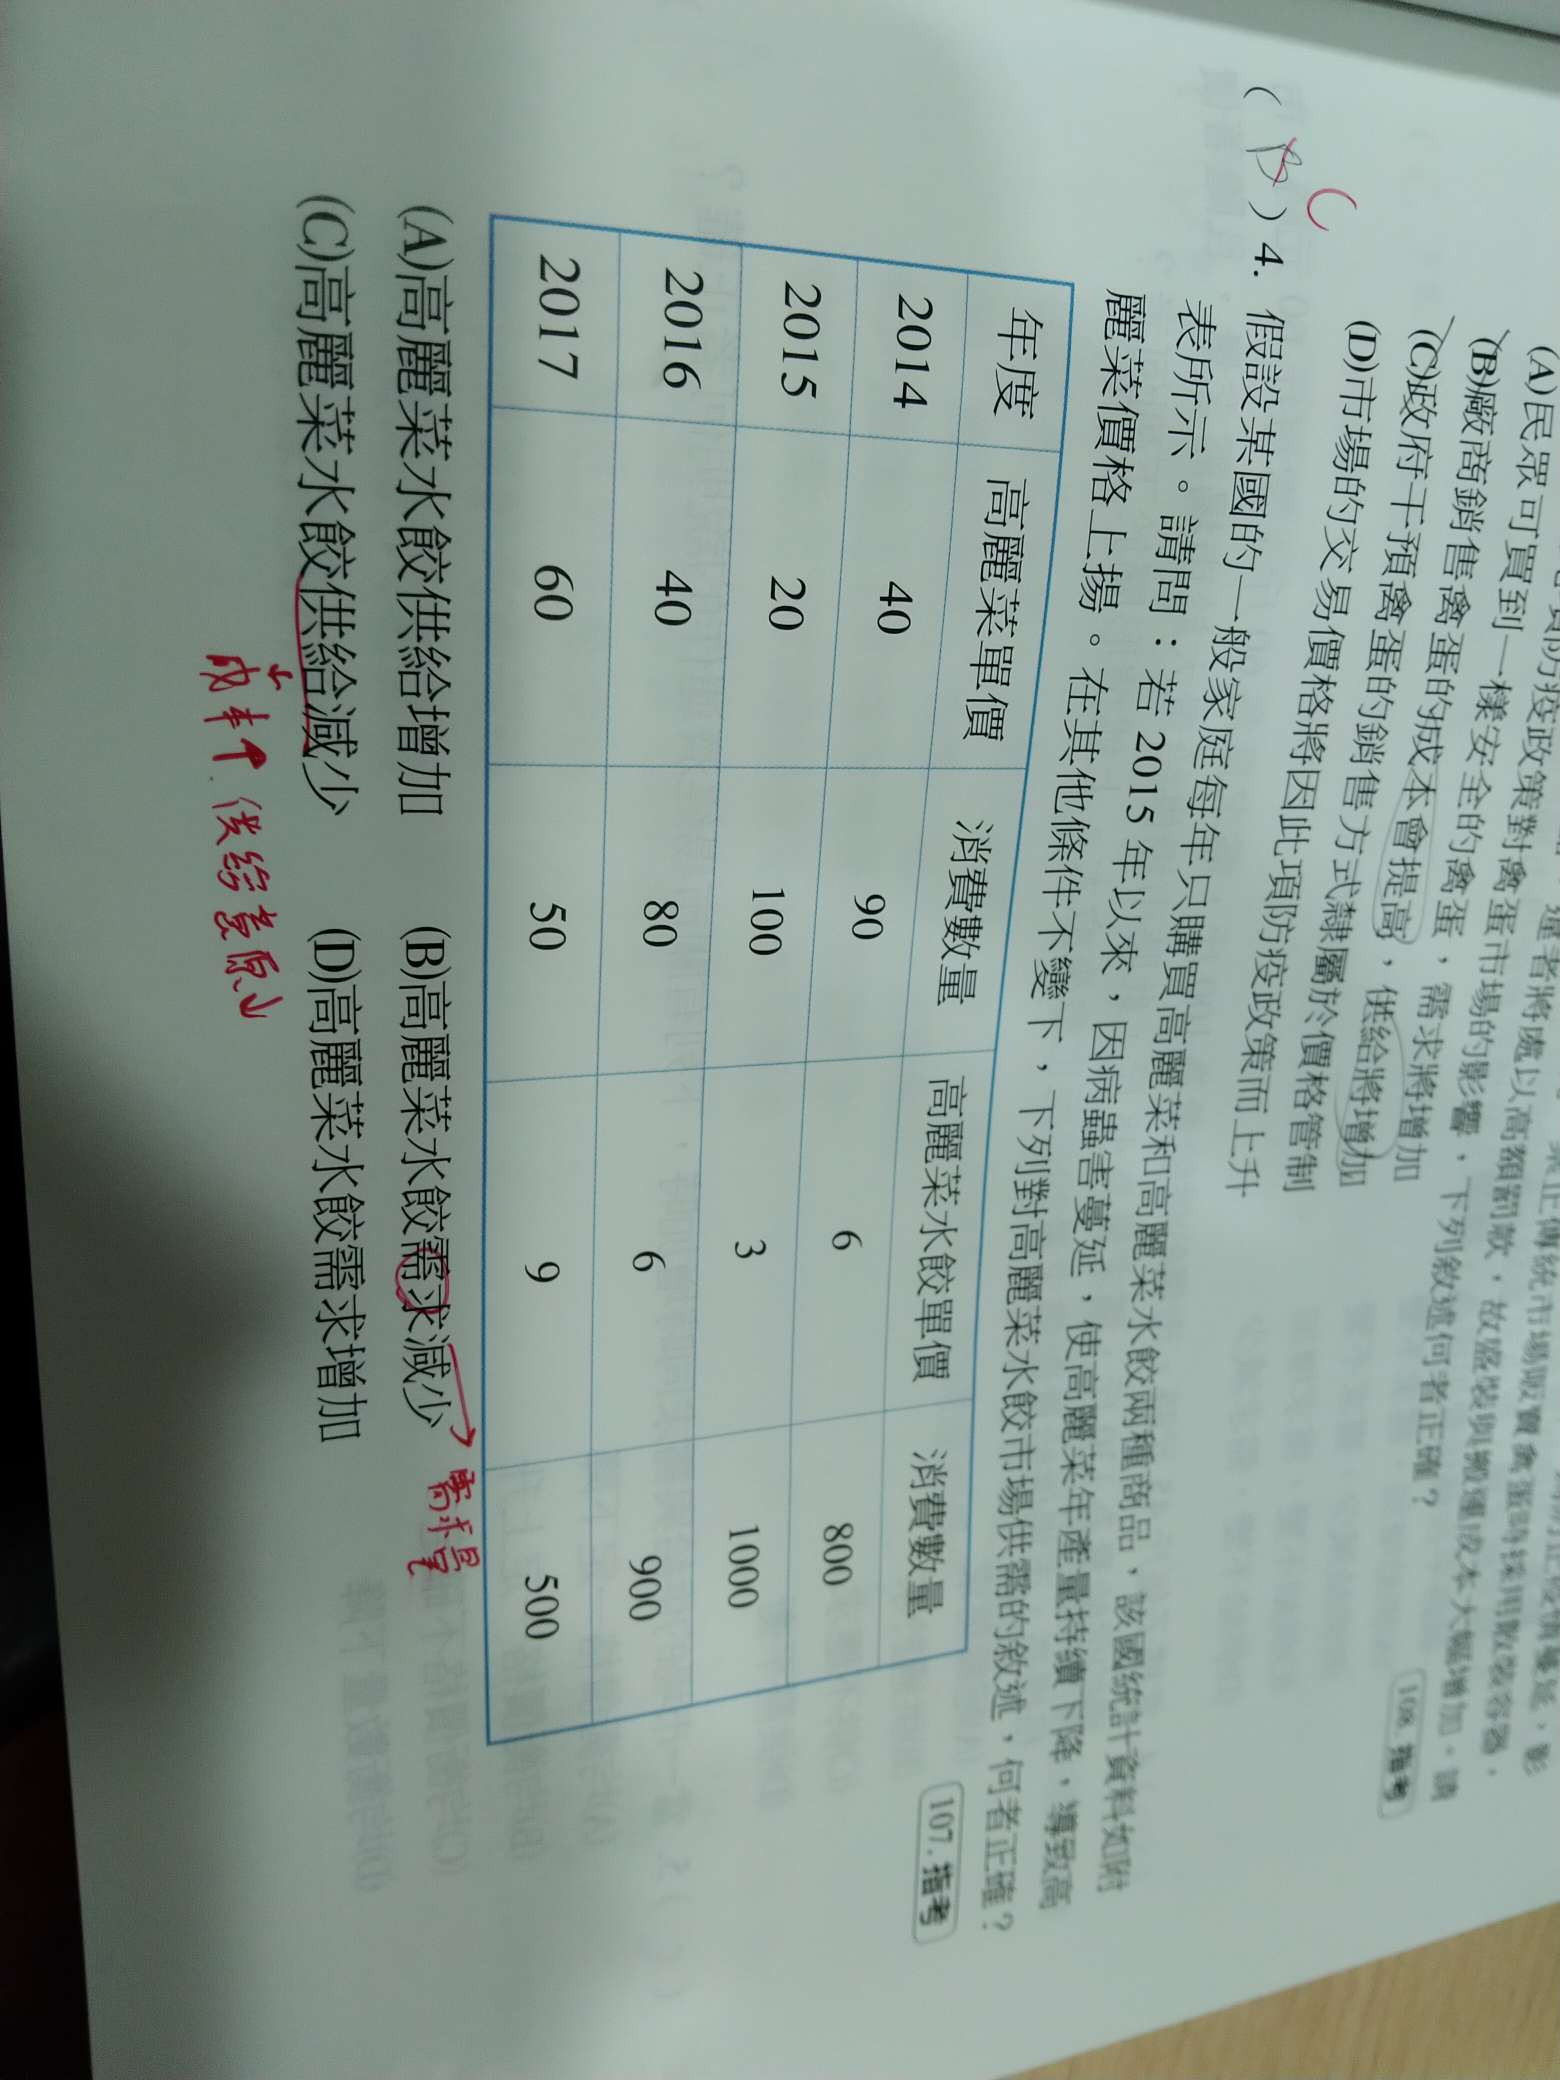 (A)民眾可買到一樣安全的禽蛋，需求將增加
(B)廠商銷售禽蛋的成本會提高，供給將增加
(C)政府干預禽蛋的銷售方式隸屬於價格管制
(D)市場的交易價格將因此項防疫政策而上升
108. 指考
( B ) C 4. 假設某國的一般家庭每年只購買高麗菜和高麗菜水餃兩種商品，該國統計資料如附
表所示。請問：若 2015 年以來，因病蟲害蔓延，使高麗菜年產量持續下降，導致高
麗菜價格上揚。在其他條件不變下，下列對高麗菜水餃市場供需的敘述，何者正確？
107. 指考
年度 高麗菜單價 消費數量 高麗菜水餃單價 消費數量
2014 40 90 6 800
2015 20 100 3 1000
2016 40 80 6 900
2017 60 50 9 500
(A)高麗菜水餃供給增加 (B)高麗菜水餃需求減少 → 需求量
(C)高麗菜水餃供給減少 (D)高麗菜水餃需求增加
成本↑ 供給意願↓